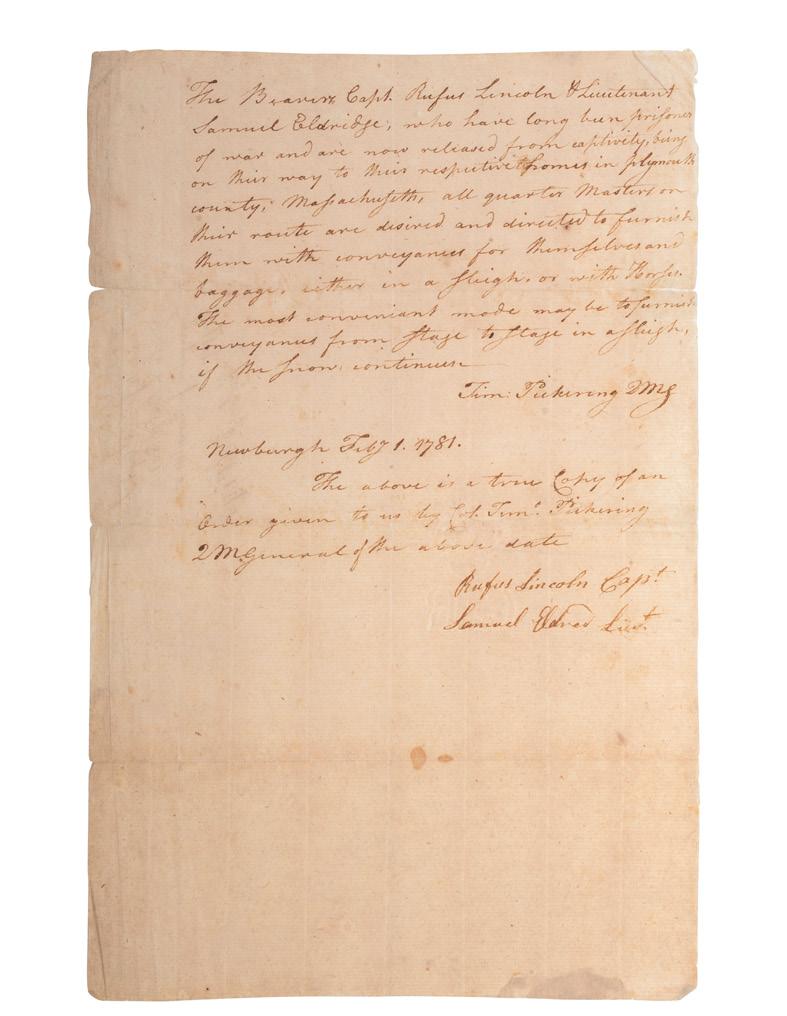 The Bearers Capt. Rufus Lincoln & Lieutenant
Samuel Eldridge, who have long been prisoners
of war and are now released from captivity, being
on their way to their respective homes in plymouth
county, Massachusetts, all quarter Masters on
their route are desired and directed to furnish
them with conveyances for themselves and
baggage, either in a sleigh, or with Horses.
The most conveniant mode may be to furnish
conveyances from stage to stage in a sleigh,
if the snow continues
Tim: Pickering QMG
Newburgh Feby 1. 1781.
The above is a true Copy of an
Order given to us by Col. Timo. Pickering
QMGeneral of the above date
Rufus Lincoln Capt
Samuel Eldred Lieut.